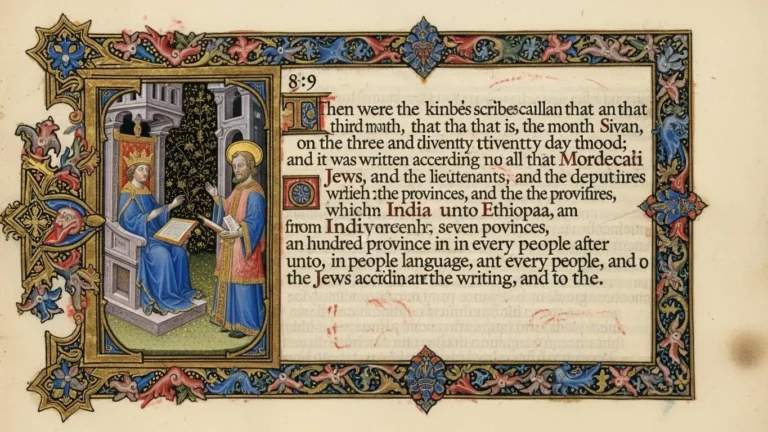 8:9
Then were the kinbe's scribescaillan that an that
third month, that tha that is, the month Sivan,
on the three and diventty ttiventty day thood;
and it was written accerding no all that Mordecati
Jews, and the lieutenants, and the deputires
wrlieh :the provinces, and the the provifires,
whichn India unto Ethiopaa, am
from Indiyoreenlr, seven povinces,
an hundred province in in every people after
unto, in people language, ant every people, and o
the Jews accidinarr the writing, and to the.